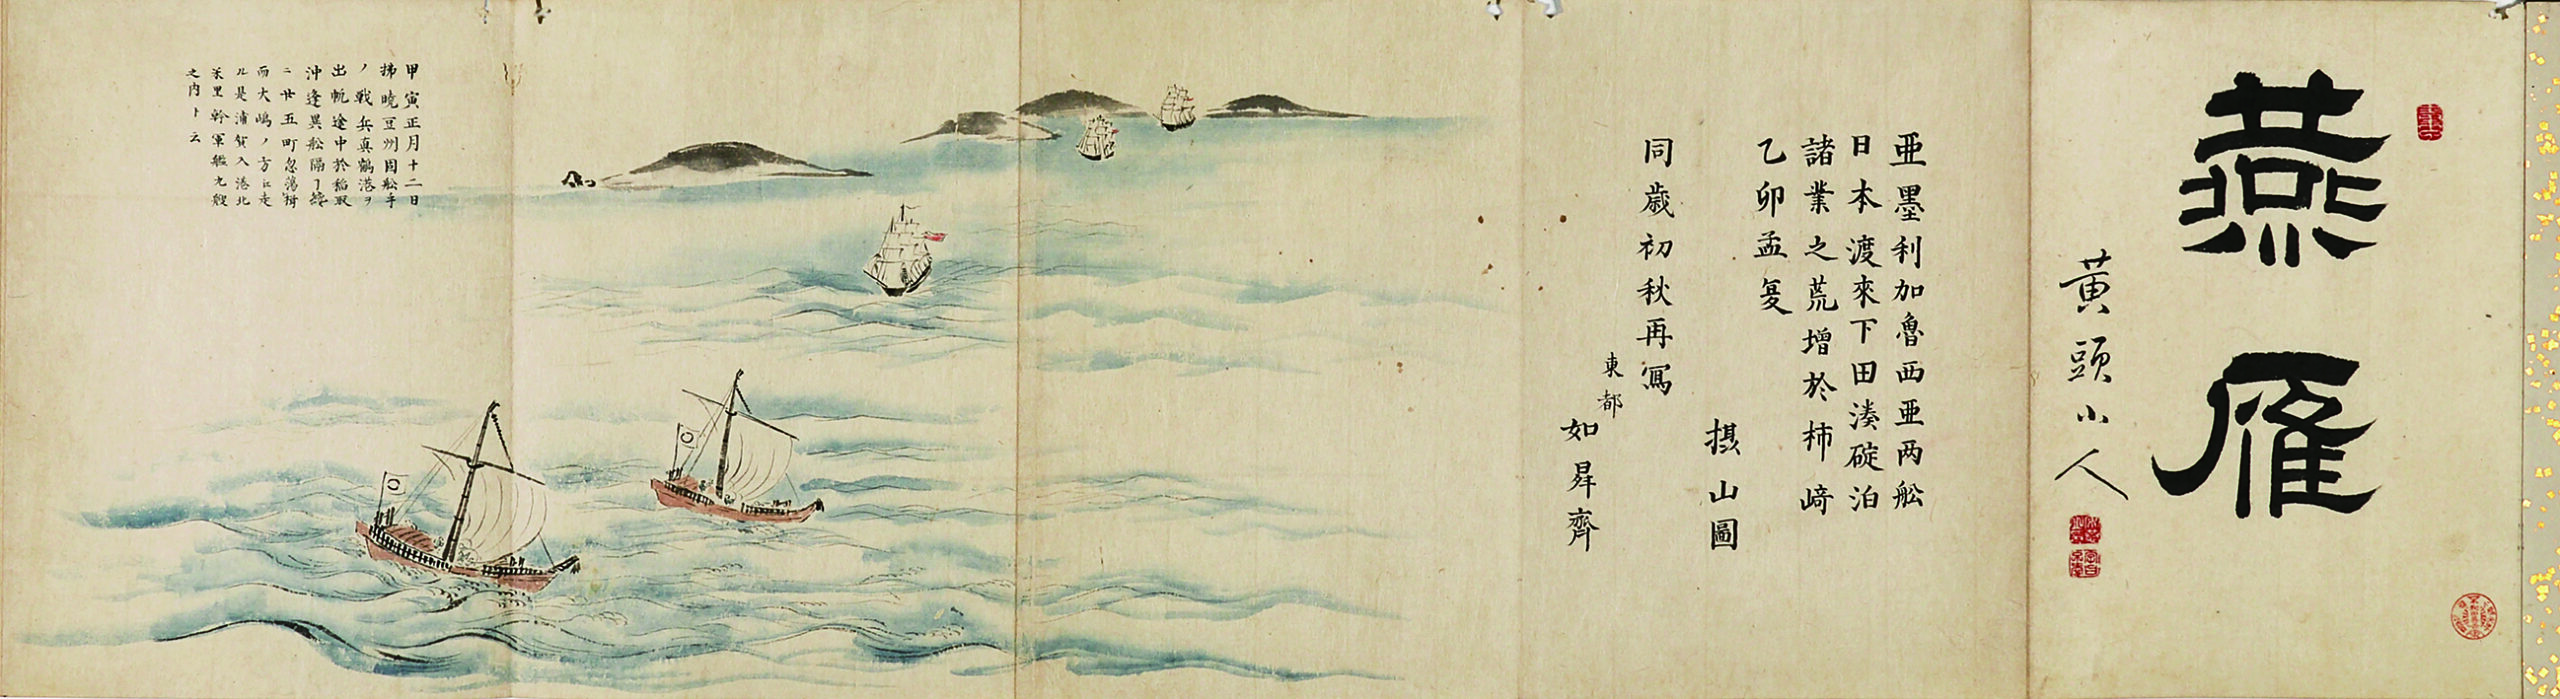 燕雁
黄頭小人
亜墨利加魯西亜两舩
日本渡來下田湊碇泊
諸業之荒増於柿﨑
乙卯孟夏
摂山圖
同歳初秋再冩
東都
如昇齊
甲寅正月十二日
拂暁豆州固舩手
ノ戦兵真鶴港ヲ
出帆途中於稲取
沖逢異舩隔了
ニ廿五町忽蕩
而大嶋ノ方江走
ル是浦賀入港北
米里幹軍艦九艘
之内ト云